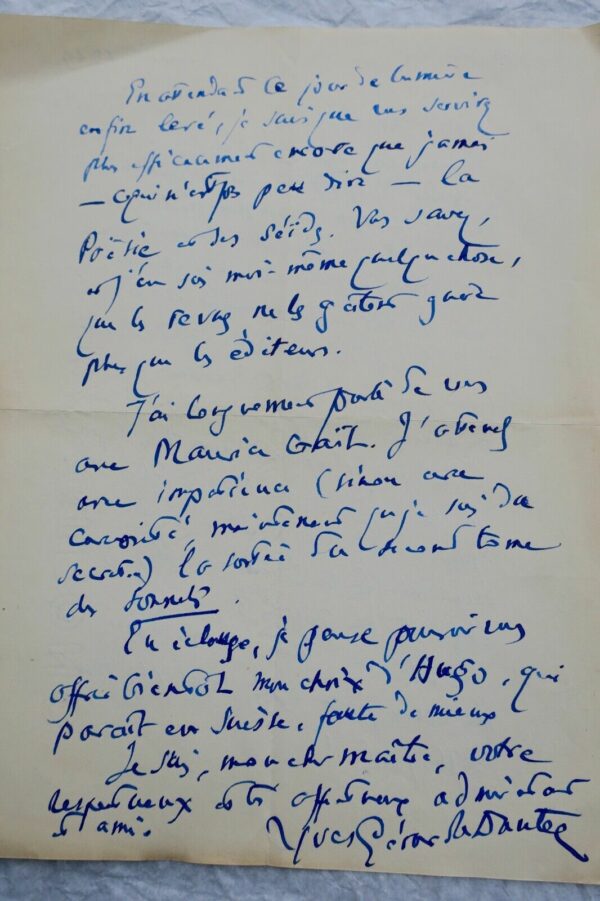 En attendant ce jour de lumière
enfin levé, je sais que vous servirez
plus efficacement encore que jamais
— ce qui n'est pas peu dire — la
Poësie et des Séïds. Vous savez,
et j'en sais moi-même quelque chose,
que les revues ne les gâtent guère
plus que les éditeurs.
J'ai longuement parlé de vous
avec Maurice Goût. J'attends
avec impatience (sinon avec
curiosité, maintenant que je suis du
secret) la sortie du second tome
des Sonnets.
En échange, je pense pouvoir vous
offrir bientôt mon choix d'Hugo, qui
paraît en Suisse, faute de mieux
Je suis, mon cher maître, votre
respectueux et très affectueux admirateur
et ami.
Yves Gérard Le Dantec